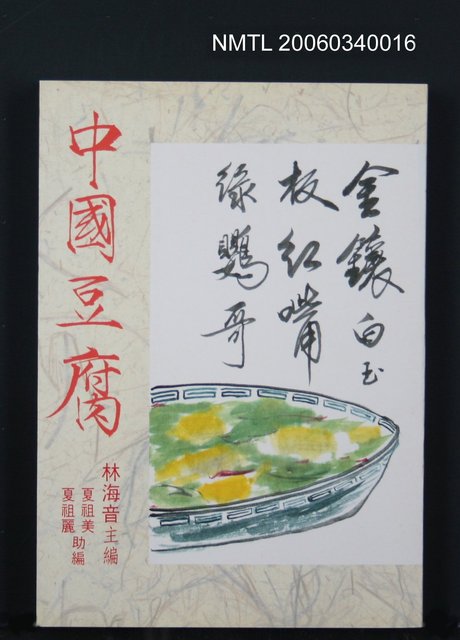 NMTL 20060340016
中國豆腐
林海音主編
夏祖美
夏祖麗
助編
金鑲白玉
板紅嘴
綠鸚哥